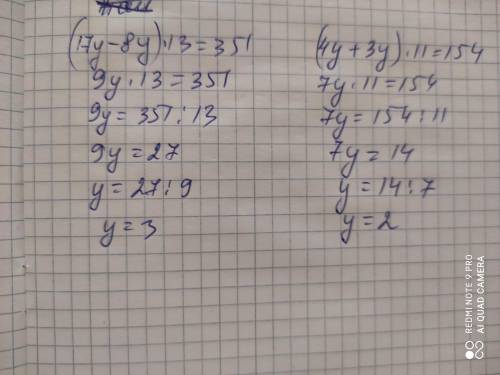 (17y-8y)·13=351
9y·13=351
9y=351:13
9y=27
y=27:9
y=3
(4y+3y)·11=154
7y·11=154
7y=154:11
7y=14
y=14:7
y=2
REDMI NOTE 9 PRO
AI QUAD CAMERA